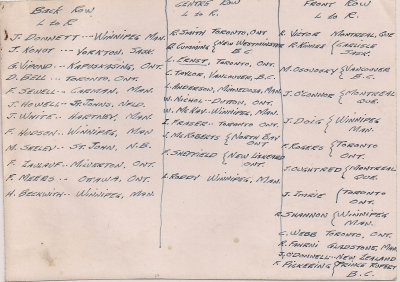 Back Row
L to R.
J. Donnett -- Winnipeg Man.
J. Kohut -- Yorkton, Sask.
G. Vipond - Kapuskasing, Ont.
D. Bell - Toronto, Ont.
F. Sewell - Carman, Man.
J. Howells - St. Johns, Nfld.
J. White - Hartney, Man.
F. Hudson - Winnipeg, Man
M. Seeley - St. John, N.B.
F. - Milverton, Ont.
F. Meers - Ottawa, Ont.
H. Beckwith - Winnipeg, Man.
Centre Row
L to R.
R. Smith Toronto, Ont
R. Cummins { New Westminster
B.C.
L. Ernst, Toronto, Ont.
C. Taylor, Vancouver, B.C.
L. Anderson, Minnedosa, Man.
W. Nichol - Ont.
W. McKay - Winnipeg, Man.
I. Fraser -- Toronto Ont.
L. McRoberts { North Bay
Ont
F. Sheffield { New Liskeard
Ont.
L. Roddy Winnipeg, Man.
Front Row
L. R.
R. Victor Montreal, Que
R. { Carlisle
Sask.
M. Oconory { Vancouver
B.C.
J. O'Connor { Montreal
Que.
J. Doig { Winnipeg
Man.
F. Rogers { Toronto
Ont.
J. Oughtred { Montreal
Que
J. Imrie { Toronto
Ont.
R. Shannon { Winnipeg
Man.
C. Webb Toronto, Ont.
R. Fahrni Gladstone, Man
J. O'Donnell - New Zealand
F. Pickering { Prince Rupert
B.C.